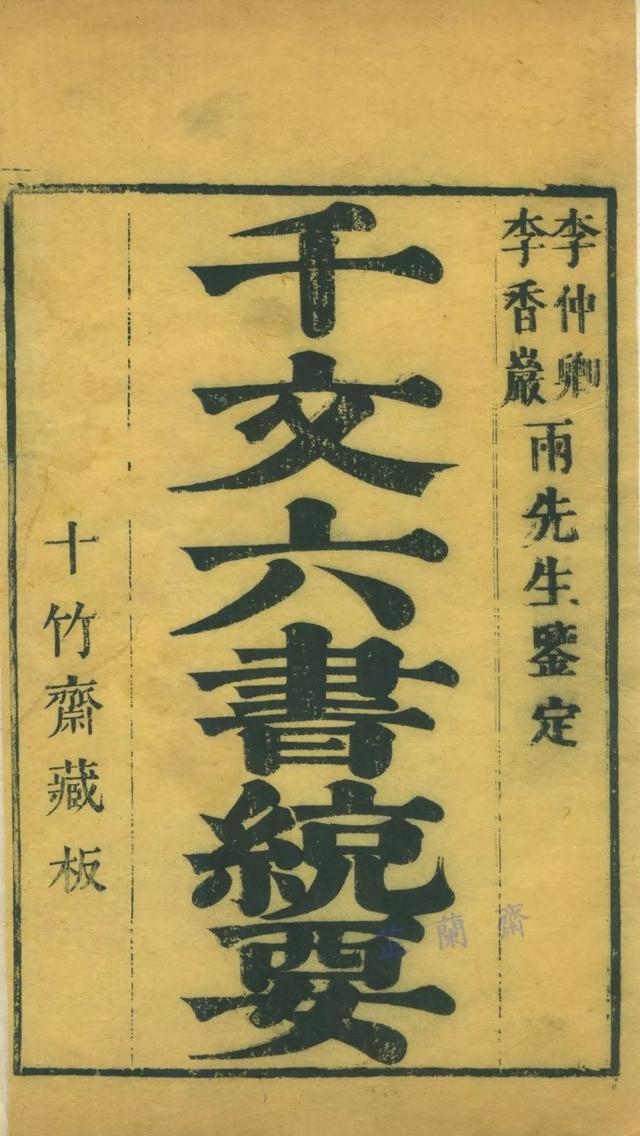 李仲卿
李香巖
兩先生鑒定
千文六書統要
十竹齋藏板
芷蘭齋